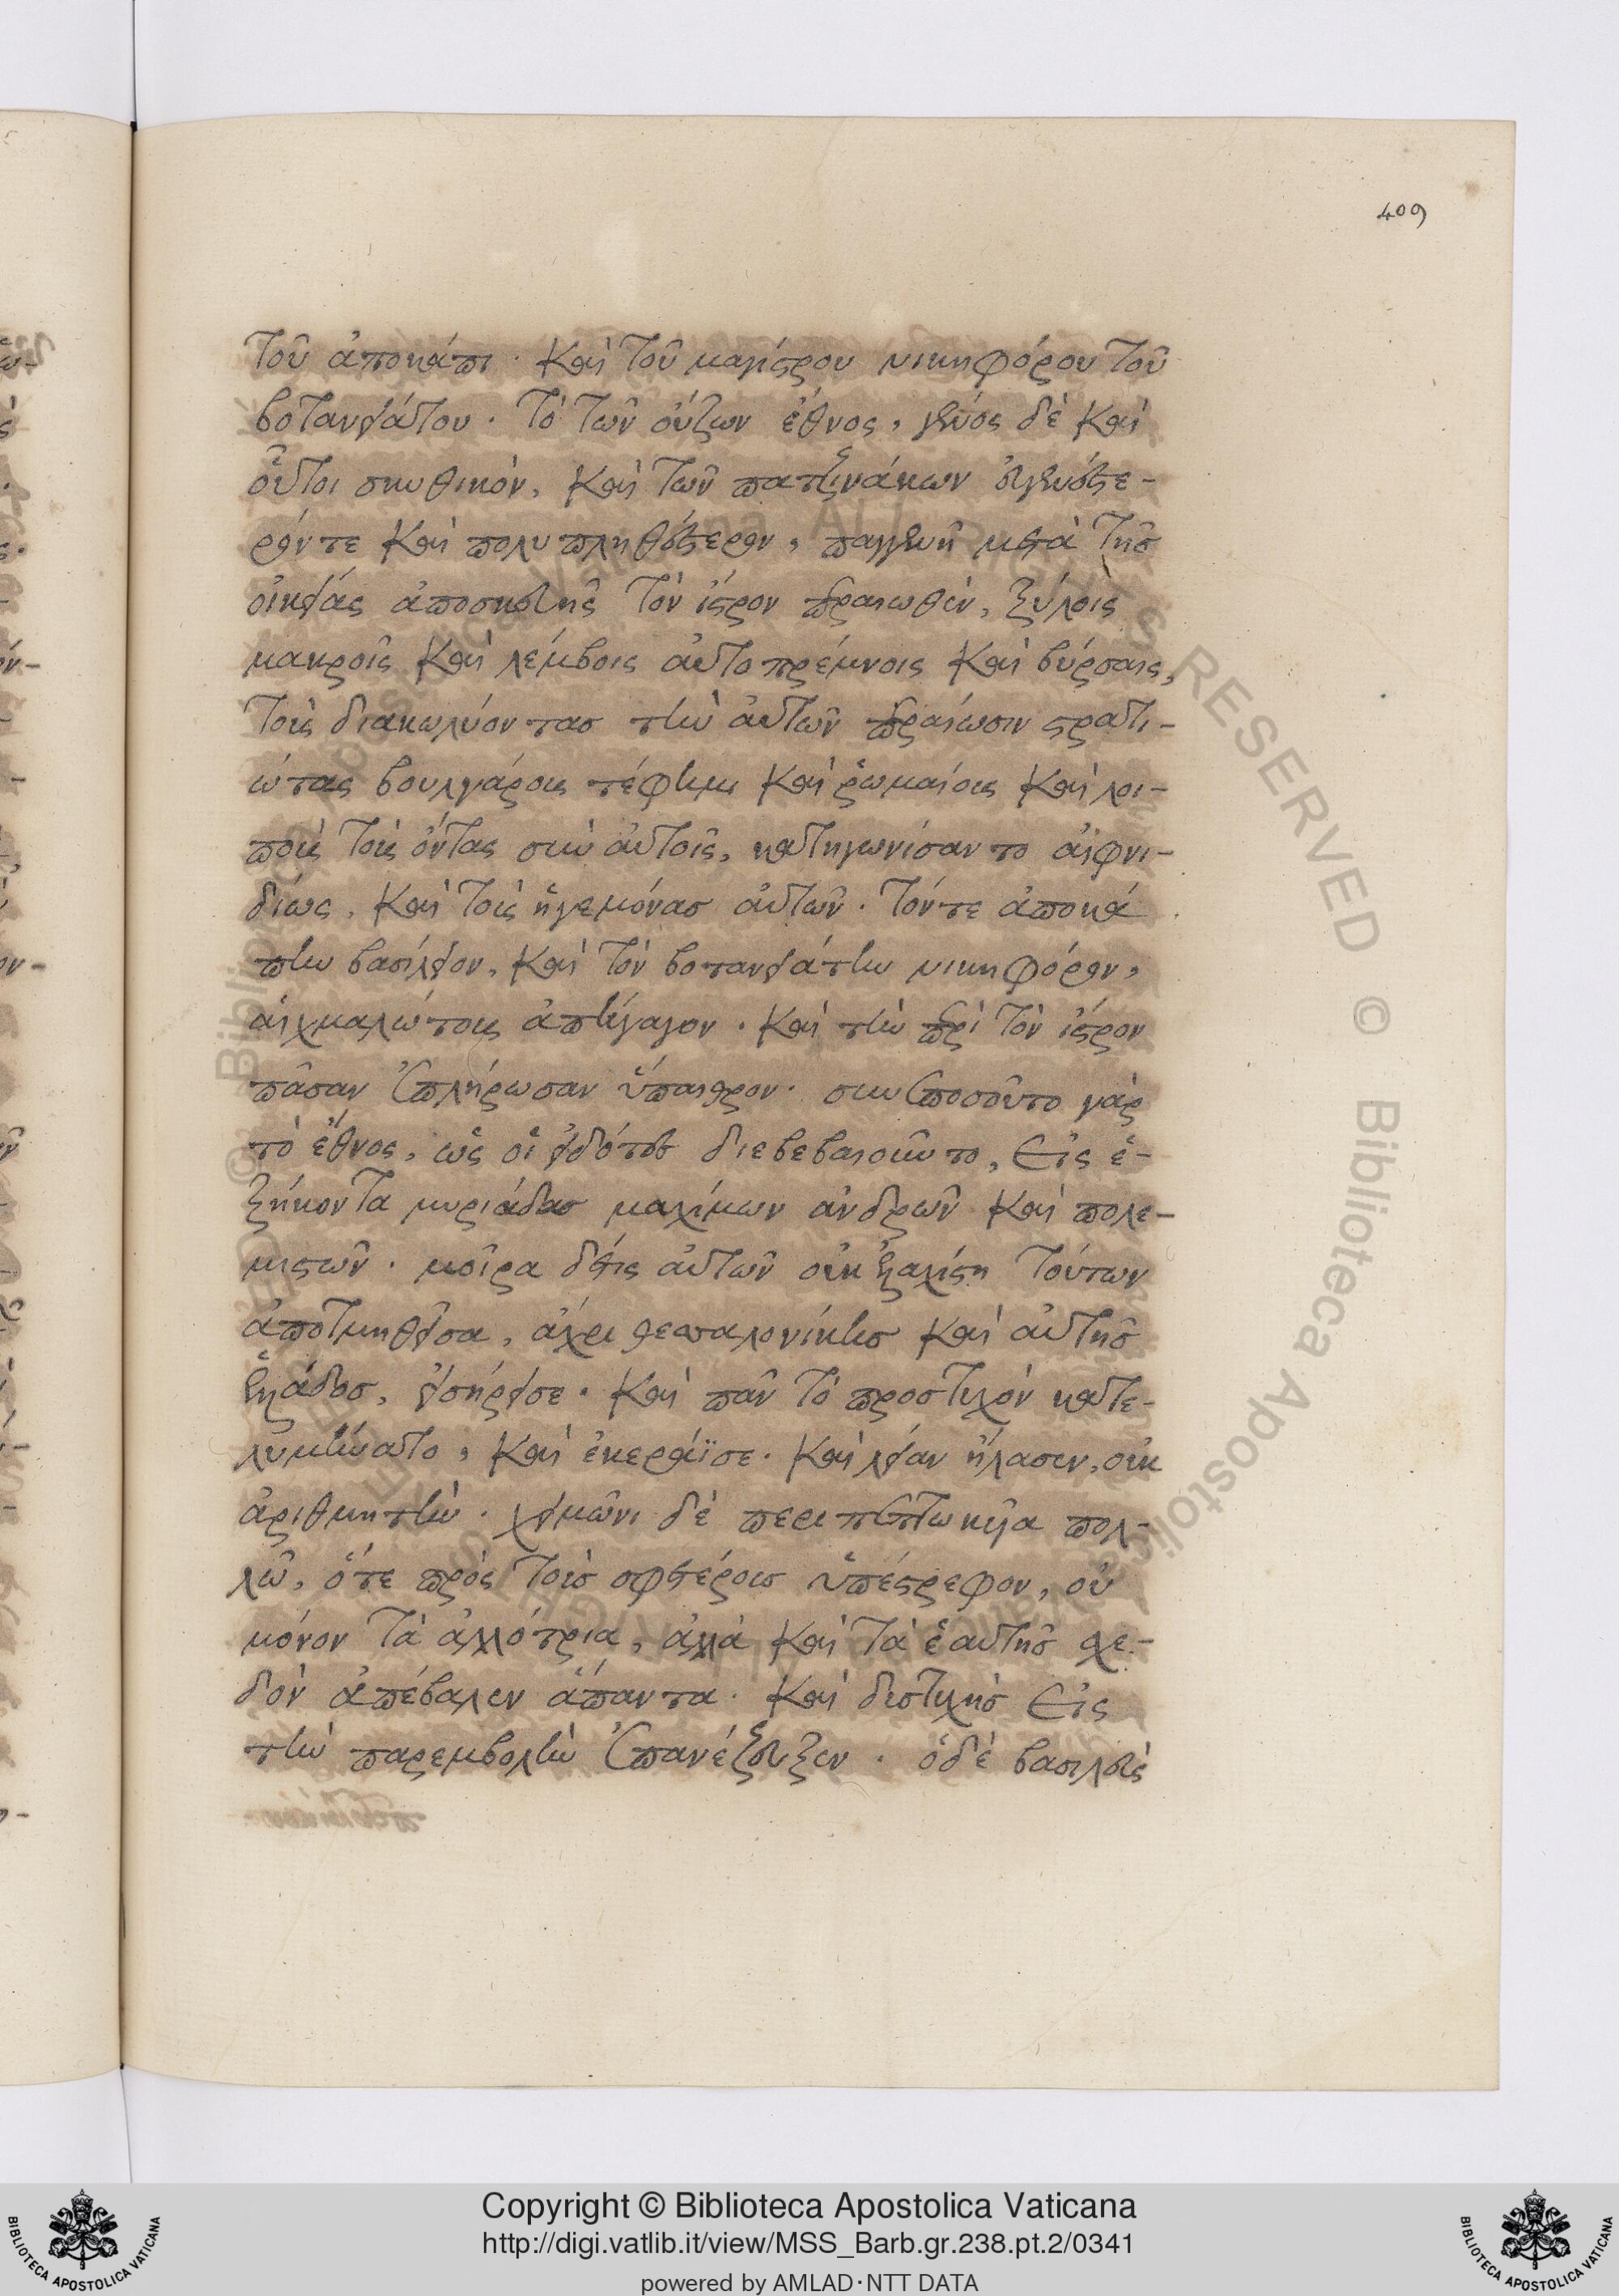 409
τοῦ ἀποκάπι. καὶ τοῦ μαγίστρου νικηφόρου τοῦ
βοτανειάτου. τὸ τῶν οὔζων ἔθνος, γένος δὲ καὶ
οὗτοι σκυθικὸν, καὶ τῶν πατζινάκων εὐγενέστε-
ρόν τε καὶ πολυπληθέστερον, παγγενῆ μετὰ τῆσ
οἰκείας ἀποσκευῆς τὸν ἴστρον περαιωθὲν, ξύλοις
μακροῖς καὶ λέμβοις αὐτοπρέμνοις καὶ βύρσαις,
τοὺς διακωλύοντασ τὴν αὐτῶν περαίωσιν στρατι-
ώτας βουλγάρους τέ φημι καὶ ῥωμαίους καὶ λοι-
ποὺς τοὺς ὄντας σὺν αὐτοῖς, κατηγωνίσαντο αἰφνι-
δίως. καὶ τοὺς ἡγεμόνασ αὐτῶν. τόν τε ἀποκά
πην βασίλειον, καὶ τὸν βοτανειάτην νικηφόρον,
αἰχμαλώτους ἀπήγαγον. καὶ τὴν περὶ τὸν ἴστρον
πᾶσαν ἐπλήρωσαν ὕπαιθρον. συνεποσοῦτο γὰρ
τὸ ἔθνος, ὡς οἱ εἰδότες διεβεβαιοῦντο, εἰς ἑ-
ξήκοντα μυριάδασ μαχίμων ἀνδρῶν καὶ πολε-
μιστῶν. μοῖρα δέ τις αὐτῶν οὐκ ἐλαχίστη τούτων
ἀποτμηθεῖσα, ἄχρι θεσσαλονίκησ καὶ αὐτῆσ
ἑλλάδοσ, εἰσήρεισε. καὶ πᾶν τὸ προστυχὸν κατε-
λυμήνατο, καὶ ἐκεράϊσε. καὶ λείαν ἤλασεν, οὐκ
ἀριθμητὴν. χειμῶνι δὲ περιπεπτωκυῖα πολ-
λῶ, ὅτε πρὸς τοῖσ σφετέροισ ὑπέστρεφον, οὐ
μόνον τὰ ἀλλότρια, ἀλλὰ καὶ τὰ ἑαυτῆσ σχε-
δὸν ἀπέβαλεν ἅπαντα. καὶ δυστυχῶσ εἰς
τὴν παρεμβολὴν ἐπανέζευξεν. ὁ δὲ βασιλεὺς
Copyright © Biblioteca Apostolica Vaticana
http://digi.vatlib.it/view/MSS_Barb.gr.238.pt.2/0341
powered by AMLAD·NTT DATA
BIBLIOTECA APOSTOLICA VATICANA
BIBLIOTECA APOSTOLICA VATICANA